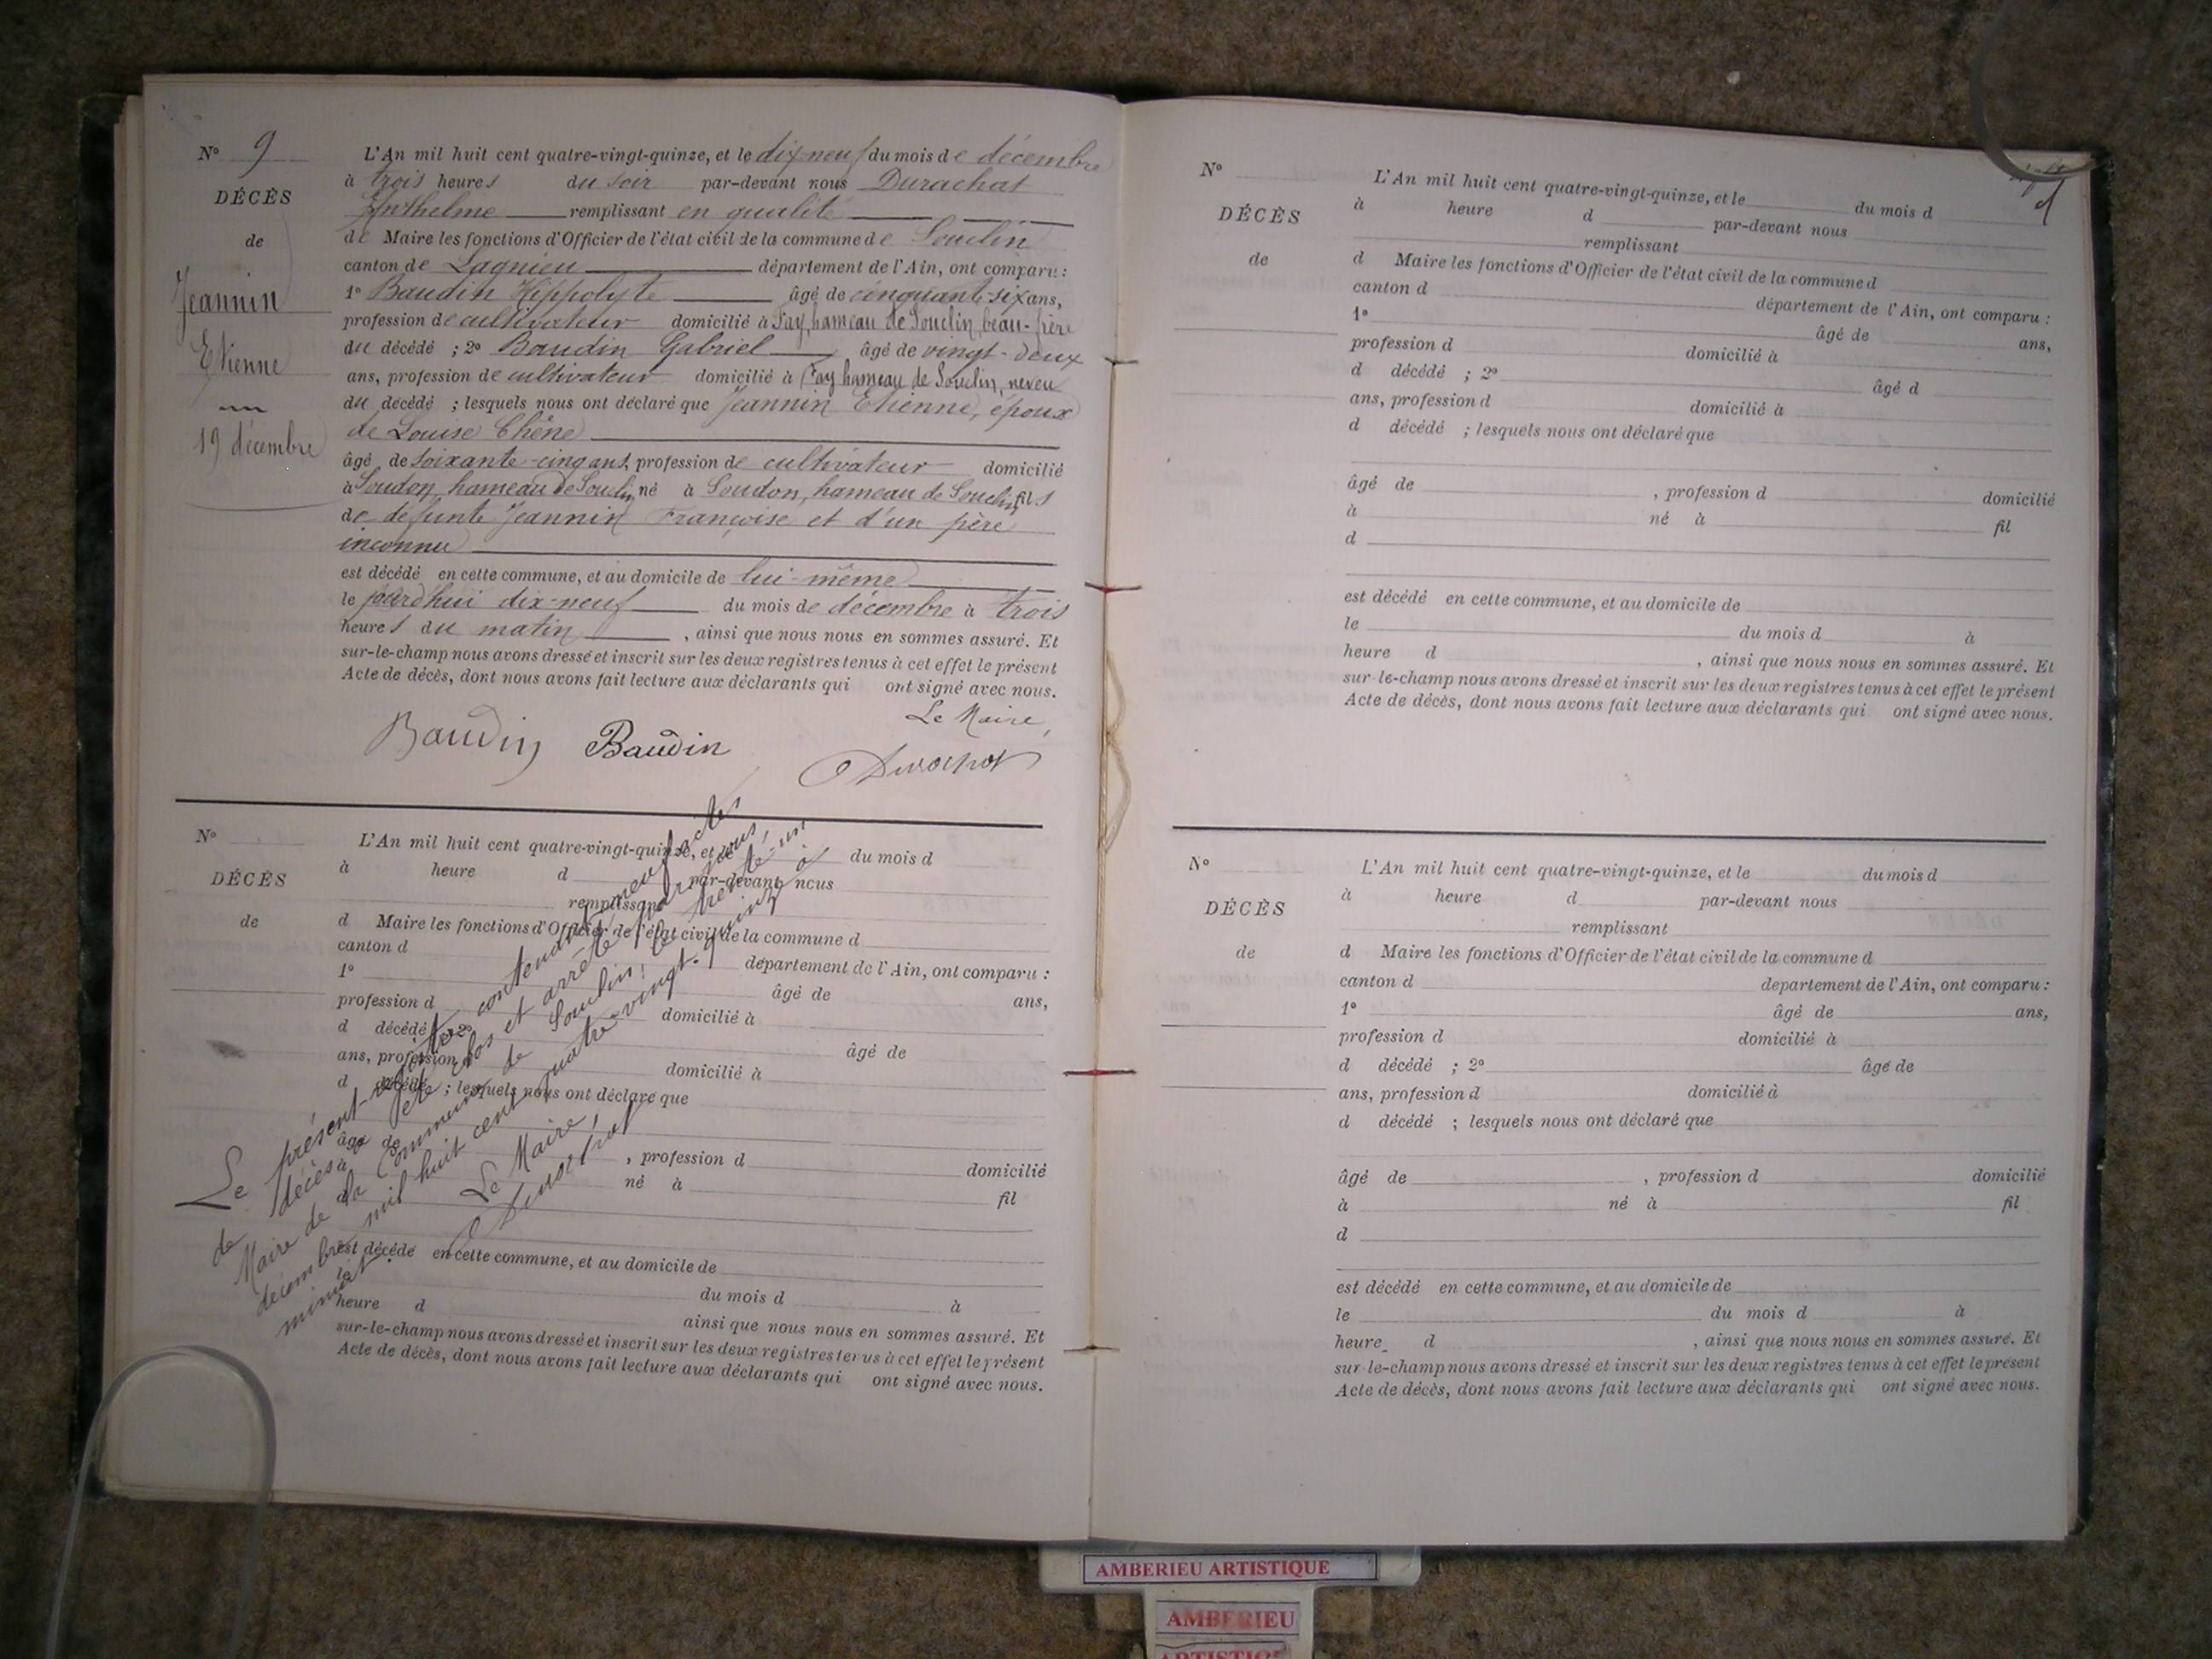 N° 9
DÉCÈS
de
Jeannin
Etienne
19 décembre
L'An mil huit cent quatre-vingt-quinze, et le dix-neuf du mois de décembre
à trois heures du soir par-devant nous Durachat
Anthelme remplissant en qualité
de Maire les fonctions d'Officier de l'état civil de la commune de Souclin
canton de Lagnieu département de l'Ain, ont comparu :
1° Baudin Hippolyte âgé de cinquante-six ans,
profession de cultivateur domicilié à Fay, hameau de Souclin, beau-frère
du décédé ; 2° Baudin Gabriel âgé de vingt-deux
ans, profession de cultivateur domicilié à Fay hameau de Souclin, neveu
du décédé ; lesquels nous ont déclaré que Jeannin Etienne, époux
de Louise Chêne
âgé de soixante-cinq ans, profession de cultivateur domicilié
à Soudon, hameau de Souclin, né à Soudon, hameau de Souclin, fils
de défunte Jeannin Françoise et d'un père
inconnu
est décédé en cette commune, et au domicile de lui-même
le jourd'hui dix-neuf du mois de décembre à trois
heures du matin , ainsi que nous nous en sommes assuré. Et
sur-le-champ nous avons dressé et inscrit sur les deux registres tenus à cet effet le présent
Acte de décès, dont nous avons fait lecture aux déclarants qui ont signé avec nous.
Le Maire,
Baudin Baudin Durachat
N°
DÉCÈS
de
L'An mil huit cent quatre-vingt-quinze, et le du mois d
à heure d par-devant nous
remplissant
d Maire les fonctions d'Officier de l'état civil de la commune d
canton d département de l'Ain, ont comparu :
1° âgé de ans,
profession d domicilié à
d décédé ; 2° âgé de
ans, profession d domicilié à
d décédé ; lesquels nous ont déclaré que
âgé de , profession d domicilié
à né à fil
d
est décédé en cette commune, et au domicile de
le du mois d à
heure d ainsi que nous nous en sommes assuré. Et
sur-le-champ nous avons dressé et inscrit sur les deux registres tenus à cet effet le présent
Acte de décès, dont nous avons fait lecture aux déclarants qui ont signé avec nous.
Le présent registre contenant neuf actes
de décès a été clos et arrêté par nous,
Maire de la Commune de Souclin, le trente-un
décembre mil huit cent quatre-vingt-quinze à
minuit.
Le Maire,
Durachat
N°
DÉCÈS
de
L'An mil huit cent quatre-vingt-quinze, et le du mois d
à heure d par-devant nous
remplissant
d Maire les fonctions d'Officier de l'état civil de la commune d
canton d département de l'Ain, ont comparu :
1° âgé de ans,
profession d domicilié à
d décédé ; 2° âgé d
ans, profession d domicilié à
d décédé ; lesquels nous ont déclaré que
âgé de , profession d domicilié
à né à fil
d
est décédé en cette commune, et au domicile de
le du mois d à
heure d , ainsi que nous nous en sommes assuré. Et
sur-le-champ nous avons dressé et inscrit sur les deux registres tenus à cet effet le présent
Acte de décès, dont nous avons fait lecture aux déclarants qui ont signé avec nous.
N°
DÉCÈS
de
L'An mil huit cent quatre-vingt-quinze, et le du mois d
à heure d par-devant nous
remplissant
d Maire les fonctions d'Officier de l'état civil de la commune d
canton d departement de l'Ain, ont comparu :
1° âgé de ans,
profession d domicilié à
d décédé ; 2° âgé de
ans, profession d domicilié à
d décédé ; lesquels nous ont déclaré que
âgé de , profession d domicilié
à né à fil
d
est décédé en cette commune, et au domicile de
le du mois d à
heure d , ainsi que nous nous en sommes assuré. Et
sur-le-champ nous avons dressé et inscrit sur les deux registres tenus à cet effet le présent
Acte de décès, dont nous avons fait lecture aux déclarants qui ont signé avec nous.
AMBERIEU ARTISTIQUE
AMBERIEU
ARTISTIQUE